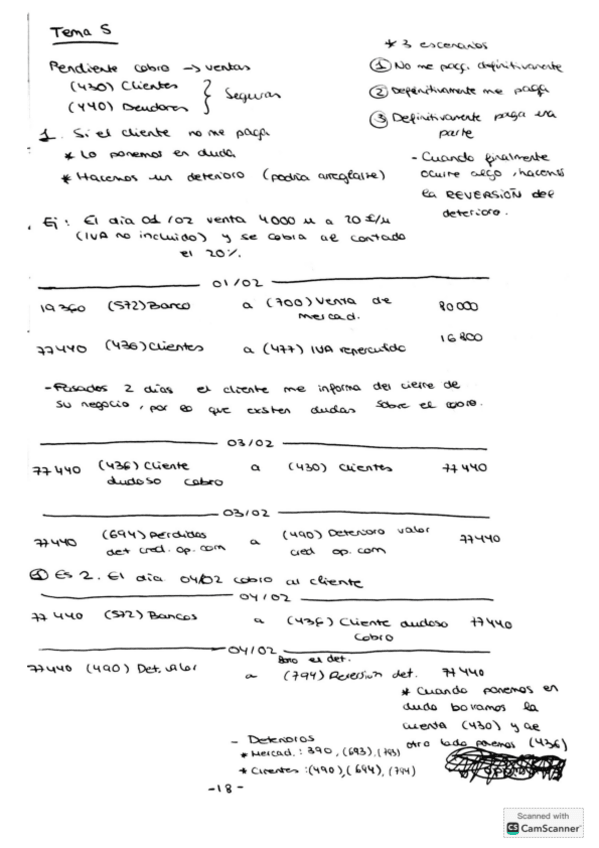 Tema 5
Pendiente cobro → ventas
(430) Clientes
(440) Deudores } Seguras
1. Si el cliente no me paga
* Lo ponemos en duda
* Hacemos un deterioro (podria arreglarse)
* 3 escenarios
① No me pag. definitivamente
② Definitivamente me paga
③ Definitivamente paga una
parte
- Cuando finalmente
ocurre algo, hacemos
la REVERSIÓN del
deterioro.
Ej: El dia 01/02 venta 4000 u a 20 €/u
(IVA no incluido) y se cobra al contado
el 20%.
01/02
19360 (572) Banco a (700) Venta de 80000
mercad.
77440 (436) Clientes a (477) IVA repercutido 16800
- Pasados 2 dias el cliente me informa del cierre de
su negocio, por lo que existen dudas sobre el cobro.
03/02
77440 (436) Cliente a (430) Clientes 77440
dudoso cobro
03/02
77440 (694) Perdidas a (490) Deterioro valor 77440
det cred. op. com cred op. com
Es 2. El dia 04/02 cobro al cliente
04/02
77440 (572) Bancos a (436) Cliente dudoso 77440
cobro
04/02
Borro el det.
77440 (490) Det. valor a (794) Reversion det. 77440
* Cuando ponemos en
duda borramos la
cuenta (430) y al
otro lado ponemos (436)
- Deterioros
* Mercad.: 390, (693), (793)
* Clientes: (490), (694), (794)
-18-
Scanned with
CS CamScanner